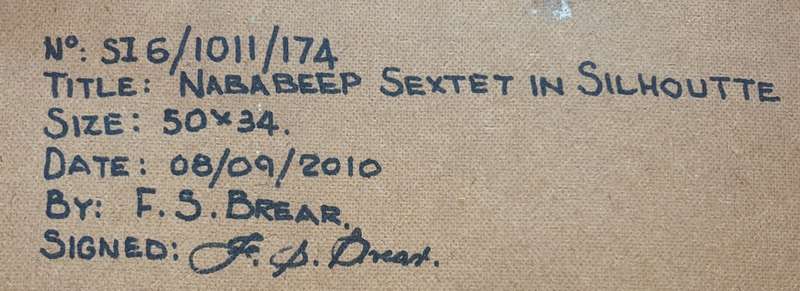 Nº: SI6/1011/174
TITLE: NABABEEP SEXTET IN SILHOUTTE
SIZE: 50×34.
DATE: 08/09/2010
BY: F.S.BREAR.
SIGNED: F. S. Brear.